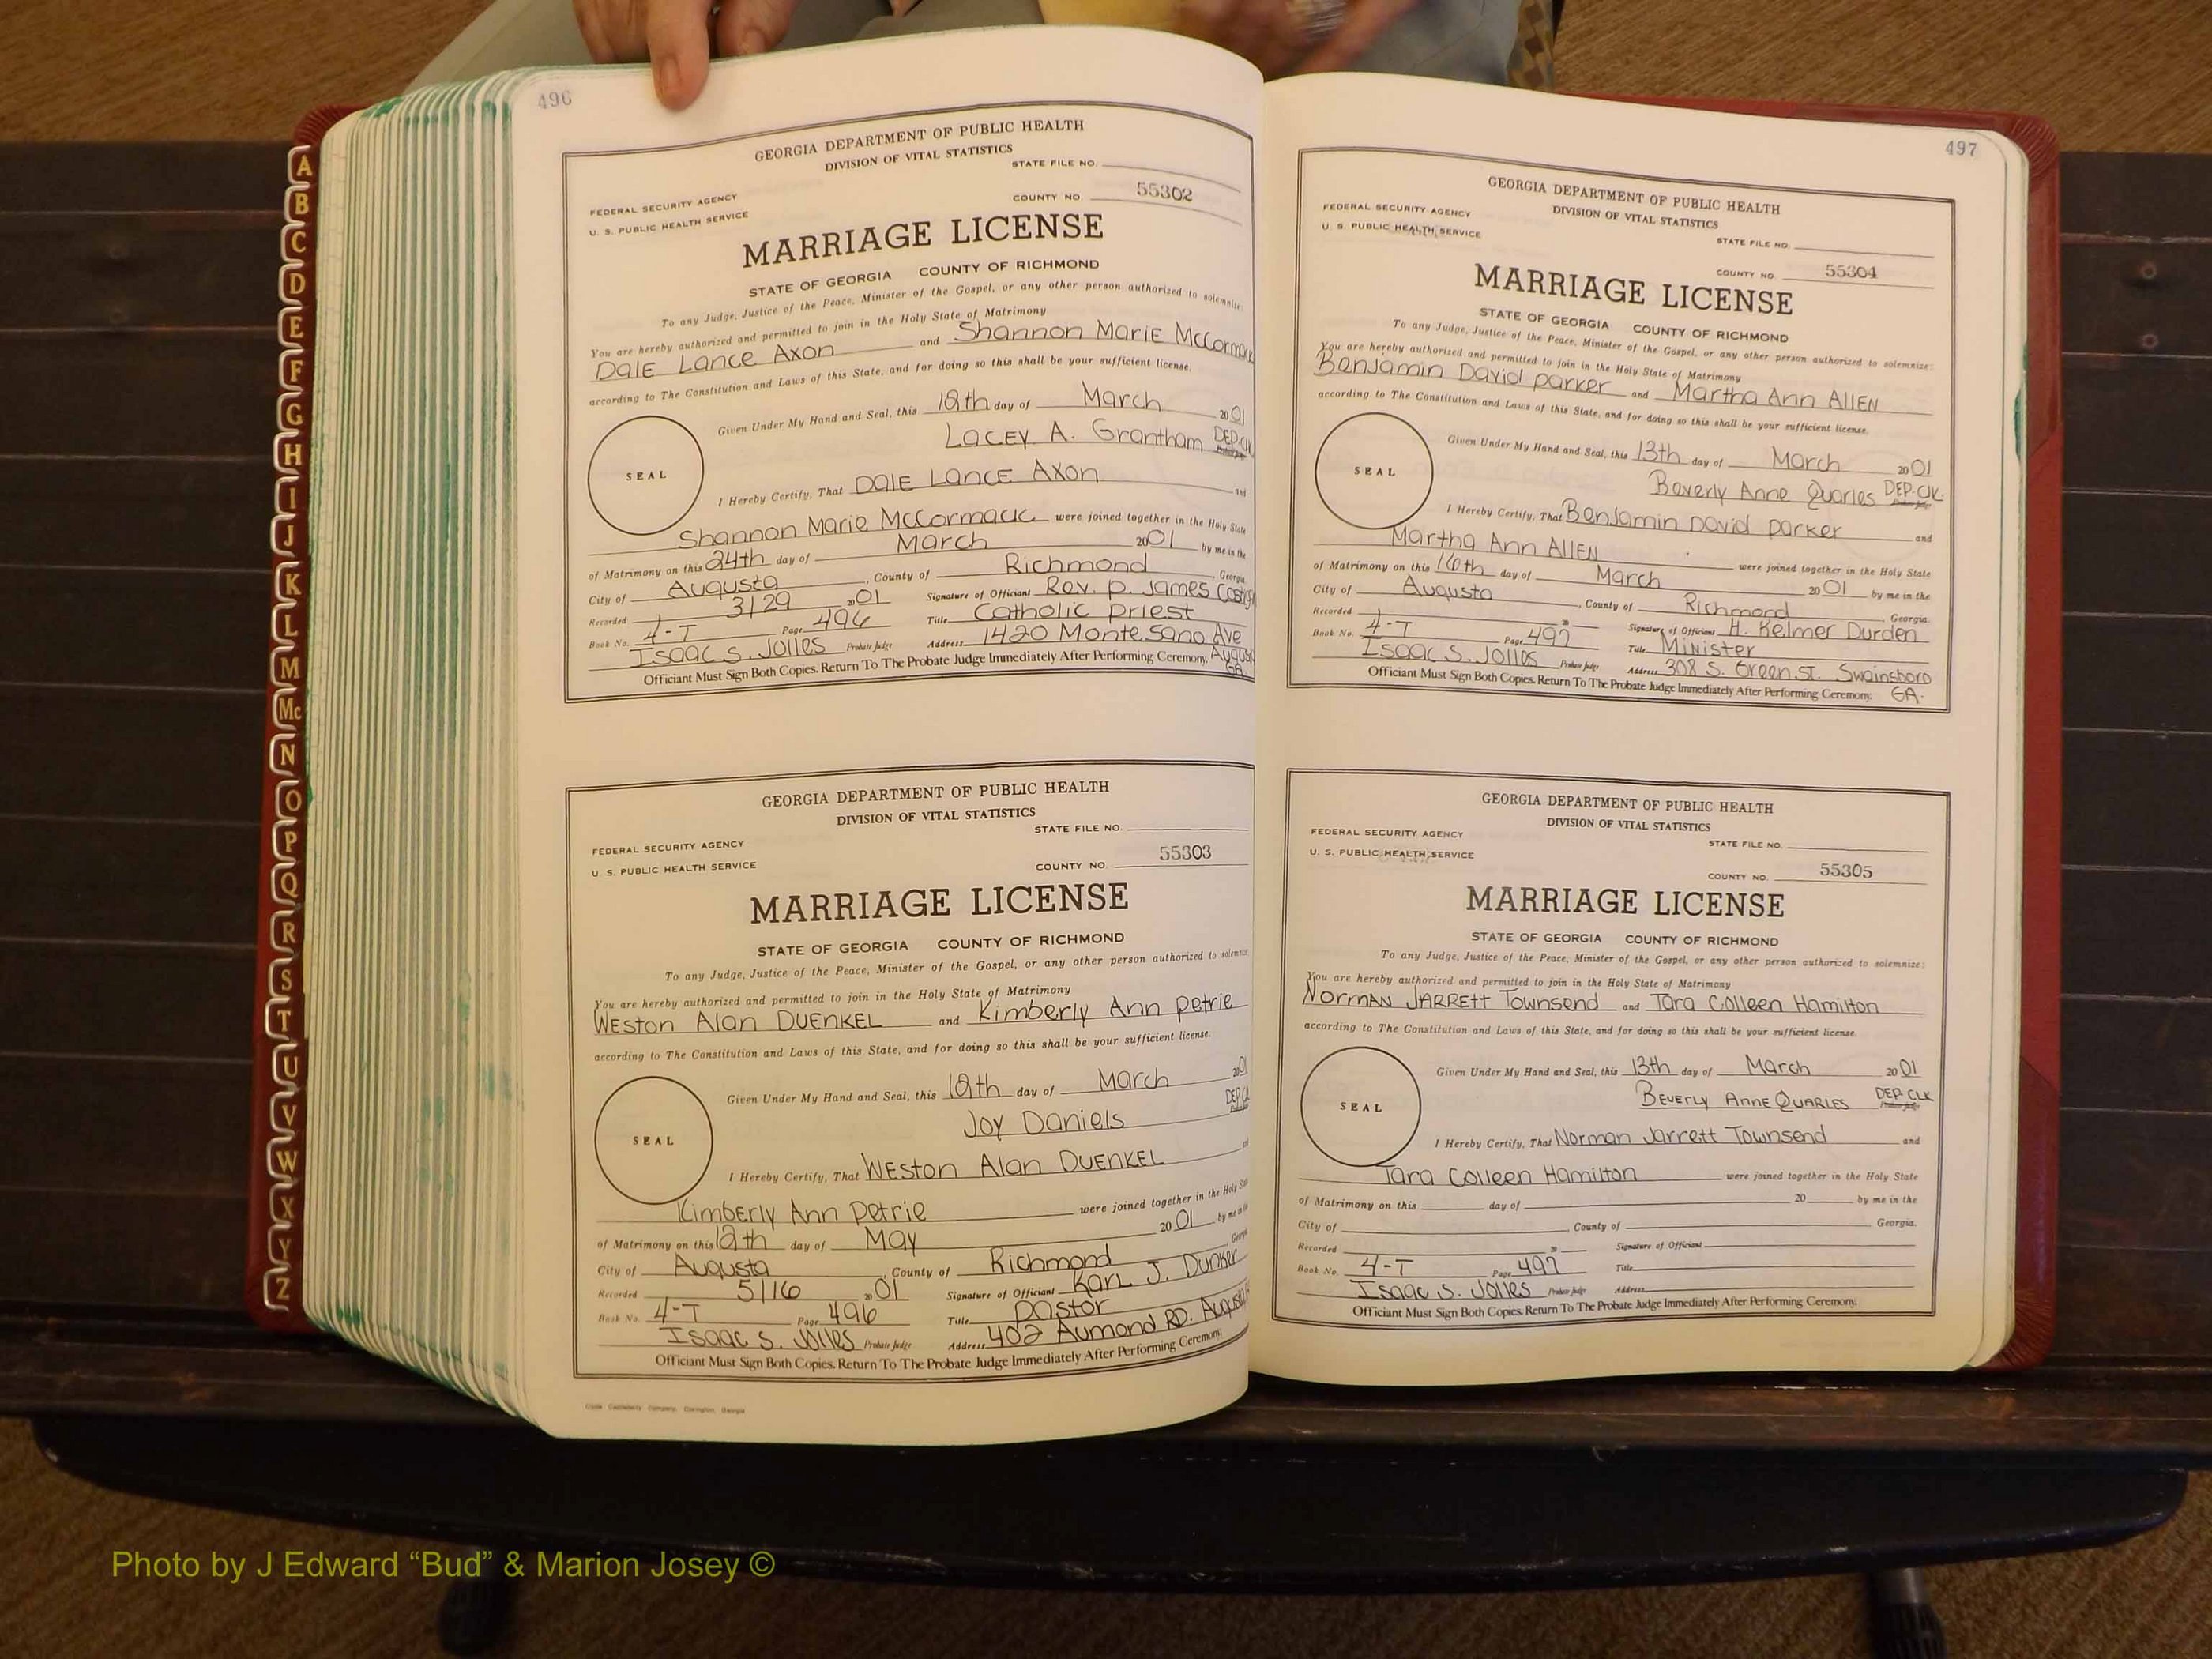 A
B
C
D
E
F
G
H
I
J
K
L
M
Mc
N
O
P
Q
R
S
T
U
V
W
X
Y
Z
496
GEORGIA DEPARTMENT OF PUBLIC HEALTH
DIVISION OF VITAL STATISTICS
STATE FILE NO.
FEDERAL SECURITY AGENCY
U. S. PUBLIC HEALTH SERVICE
COUNTY NO. 55302
MARRIAGE LICENSE
STATE OF GEORGIA COUNTY OF RICHMOND
To any Judge, Justice of the Peace, Minister of the Gospel, or any other person authorized to solemnize:
You are hereby authorized and permitted to join in the Holy State of Matrimony
Dale Lance Axon and Shannon Marie McCormack
according to The Constitution and Laws of this State, and for doing so this shall be your sufficient license.
Given Under My Hand and Seal, this 12th day of March 2001
Lacey A. Grantham DEP. CLK
SEAL
I Hereby Certify, That Dale Lance Axon and
Shannon Marie McCormack were joined together in the Holy State
of Matrimony on this 24th day of March 2001 by me in the
City of Augusta, County of Richmond Georgia.
Recorded 3/29 2001 Signature of Officiant Rev. P. James
Book No. 4-T Page 496 Title Catholic Priest
Isaac S. Jolles Probate Judge Address 1420 Monte Sano Ave Augusta GA
Officiant Must Sign Both Copies. Return To The Probate Judge Immediately After Performing Ceremony.
GEORGIA DEPARTMENT OF PUBLIC HEALTH
DIVISION OF VITAL STATISTICS
STATE FILE NO.
FEDERAL SECURITY AGENCY
U. S. PUBLIC HEALTH SERVICE
COUNTY NO. 55303
MARRIAGE LICENSE
STATE OF GEORGIA COUNTY OF RICHMOND
To any Judge, Justice of the Peace, Minister of the Gospel, or any other person authorized to solemnize
You are hereby authorized and permitted to join in the Holy State of Matrimony
Weston Alan Duenkel and Kimberly Ann Petrie
according to The Constitution and Laws of this State, and for doing so this shall be your sufficient license.
Given Under My Hand and Seal, this 12th day of March 2001
Joy Daniels DEP. CL
SEAL
I Hereby Certify, That Weston Alan Duenkel and
Kimberly Ann Petrie were joined together in the Holy State
of Matrimony on this 12th day of May 2001 by me in the
City of Augusta, County of Richmond Georgia
Recorded 5/16 2001 Signature of Officiant Karl J. Dunker
Book No. 4-T Page 496 Title Pastor
Isaac S. Jolles Probate Judge Address 402 Aumond RD. Augusta
Officiant Must Sign Both Copies. Return To The Probate Judge Immediately After Performing Ceremony.
497
GEORGIA DEPARTMENT OF PUBLIC HEALTH
DIVISION OF VITAL STATISTICS
FEDERAL SECURITY AGENCY
U. S. PUBLIC HEALTH SERVICE
STATE FILE NO.
COUNTY NO. 55304
MARRIAGE LICENSE
STATE OF GEORGIA COUNTY OF RICHMOND
To any Judge, Justice of the Peace, Minister of the Gospel, or any other person authorized to solemnize:
You are hereby authorized and permitted to join in the Holy State of Matrimony
Benjamin David Parker and Martha Ann Allen
according to The Constitution and Laws of this State, and for doing so this shall be your sufficient license.
Given Under My Hand and Seal, this 13th day of March 2001
Beverly Anne Quarles DEP. CLK.
SEAL
I Hereby Certify, That Benjamin David Parker and
Martha Ann Allen were joined together in the Holy State
of Matrimony on this 16th day of March 2001 by me in the
City of Augusta, County of Richmond Georgia.
Recorded 20 Signature of Officiant H. Kelmer Durden
Book No. 4-T Page 497 Title Minister
Isaac S. Jolles Probate Judge Address 308 S. Green St. Swainsboro GA.
Officiant Must Sign Both Copies. Return To The Probate Judge Immediately After Performing Ceremony.
GEORGIA DEPARTMENT OF PUBLIC HEALTH
DIVISION OF VITAL STATISTICS
FEDERAL SECURITY AGENCY
U. S. PUBLIC HEALTH SERVICE
STATE FILE NO.
COUNTY NO. 55305
MARRIAGE LICENSE
STATE OF GEORGIA COUNTY OF RICHMOND
To any Judge, Justice of the Peace, Minister of the Gospel, or any other person authorized to solemnize:
You are hereby authorized and permitted to join in the Holy State of Matrimony
Norman Jarrett Townsend and Tara Colleen Hamilton
according to The Constitution and Laws of this State, and for doing so this shall be your sufficient license.
Given Under My Hand and Seal, this 13th day of March 2001
Beverly Anne Quarles DEP. CLK
SEAL
I Hereby Certify, That Norman Jarrett Townsend and
Tara Colleen Hamilton were joined together in the Holy State
of Matrimony on this day of 20 by me in the
City of , County of Georgia.
Recorded 20 Signature of Officiant
Book No. 4-T Page 497 Title
Isaac S. Jolles Probate Judge Address
Officiant Must Sign Both Copies. Return To The Probate Judge Immediately After Performing Ceremony.
Photo by J Edward “Bud” & Marion Josey ©